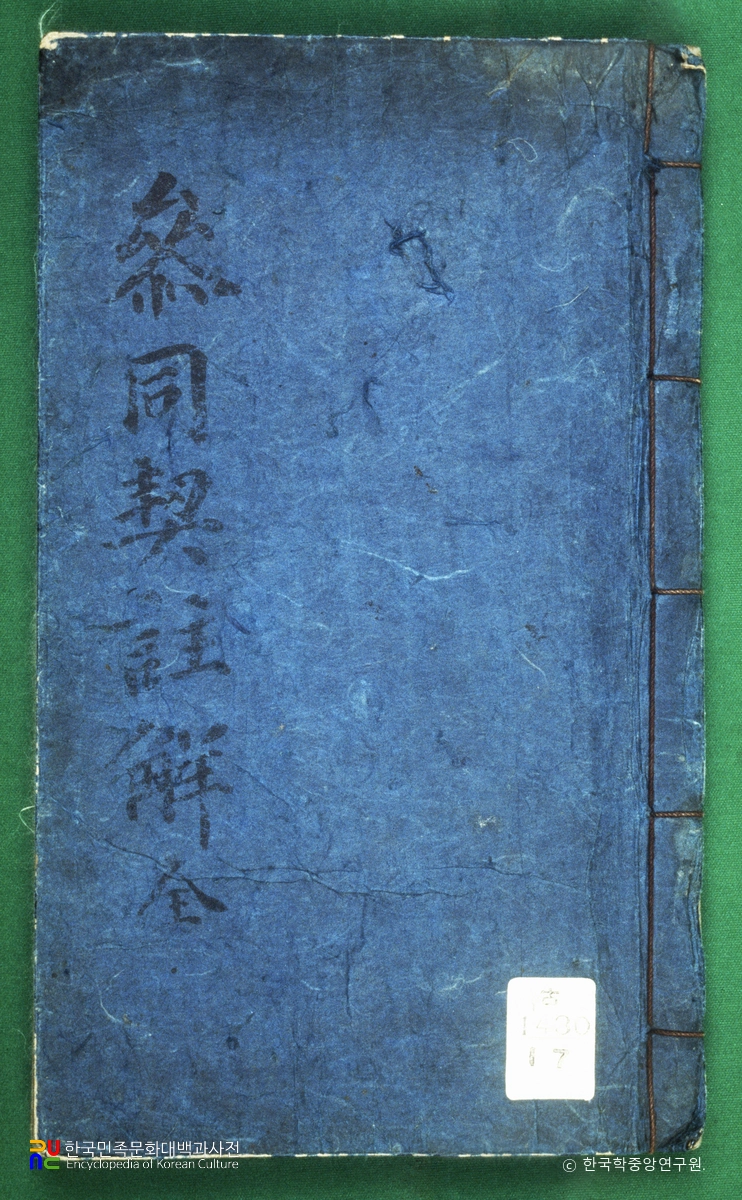 參同契註解 全
古
1400
17
한국민족문화대백과사전
Encyclopedia of Korean Culture
ⓒ 한국학중앙연구원.